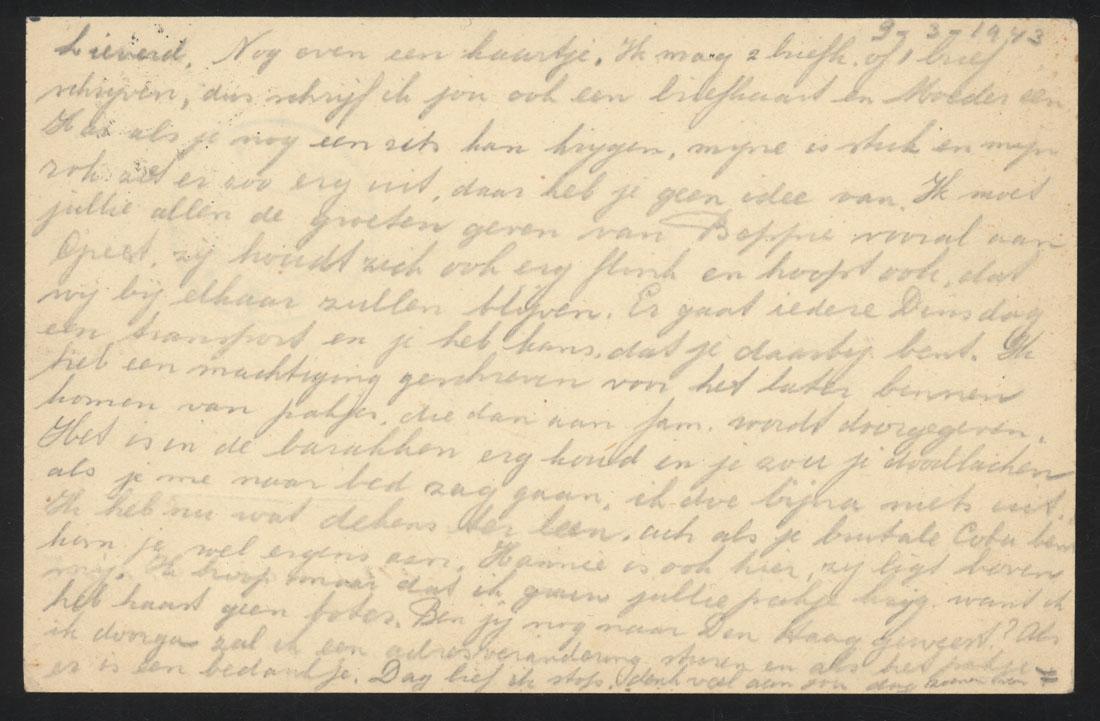 9-3-1943
Lieverd, Nog even een kaartje. Ik mag 2 briefk. of 1 brief
schrijven, dus schrijf ik jou ook een briefkaart en Moeder een
als je nog een rits kan krijgen, mijne is stuk en mijn
rok ziet er zoo erg uit, daar heb je geen idee van. Ik moet
jullie allen de groeten geven van Beppie vooral aan
zij houdt zich ook erg flink en hoopt ook, dat
wij bij elkaar zullen blijven. Er gaat iedere Dinsdag
een transport en je heb kans, dat je daarbij bent. Ik
heb een machtiging geschreven voor het laten bennen
komen van pakjes, die dan aan fam. wordt doorgegeven.
Het is in de barakken erg koud en je zou je doodlachen
als je me naar bed zag gaan, ik doe bijna niets uit.
Ik heb nu wat dekens ter leen. ach als je brutale Coba bent
kom je wel ergens aan. Hannie is ook hier, zij ligt boven
mij. Ik hoop maar dat ik gauw jullie pakje krijg want ik
heb haast geen boter. Ben jij nog naar Den Haag geweest? Als
ik doorga zal ik een adresverandering sturen en als het pakje
er is een bedankje. Dag lief ik stop, denk veel aan jou dag